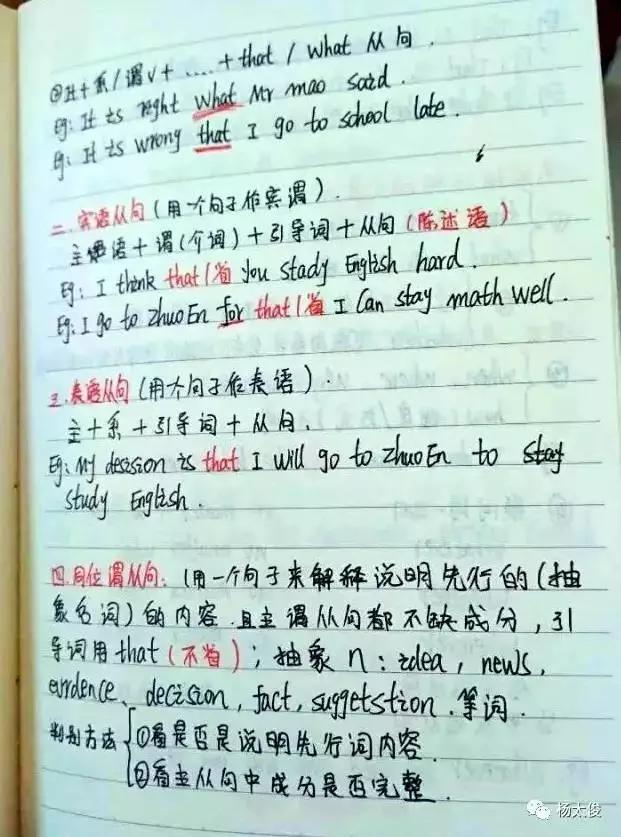 ②It+系/谓v+....+that/what 从句.
Eg: It is right what Mr mao said.
Eg: It is wrong that I go to school late.
二.宾语从句(用一个句子作宾谓).
主语+谓(介词)+引导词+从句(陈述语)
Eg: I think that(省 you stady English hard.
Eg: I go to zhuoEn for that(省 I can stay math well.
三.表语从句(用个句子作表语).
主+系+引导词+从句.
Eg: My decision is that I will go to zhuoEn to stay
study English.
四.同位谓从句:(用一个句子来解释说明先行的(抽
象名词)的内容.且主谓从句都不缺成分,引
导词用that(不省);抽象n:idea,news,
evidence、decision,fact,suggetstion.等词.
判别方法 ①看是否是说明先行词内容.
②看主从句中成分是否完整.
杨太俊